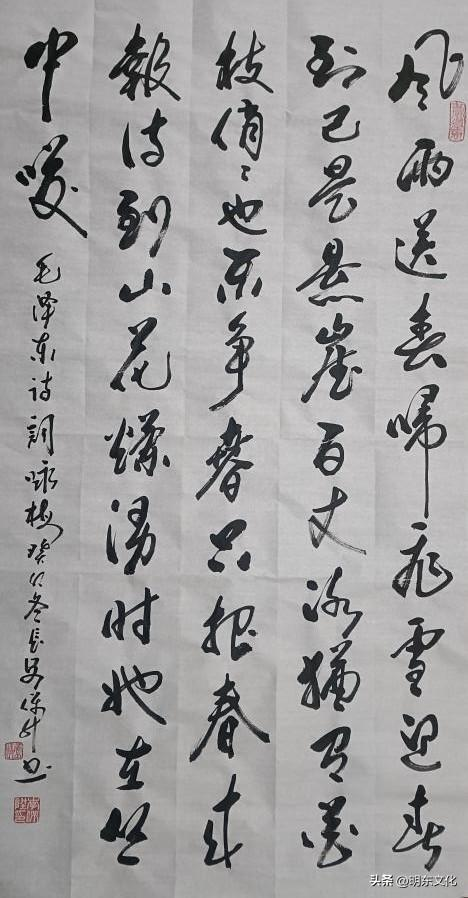 风雨送春歸飛雪迎春
到已是悬崖百丈冰猶有花
枝俏〻也不争春只把春来
報待到山花爛漫时她在丛
中咲
毛泽东诗詞咏梅癸卯冬 书
头条 @明东文化